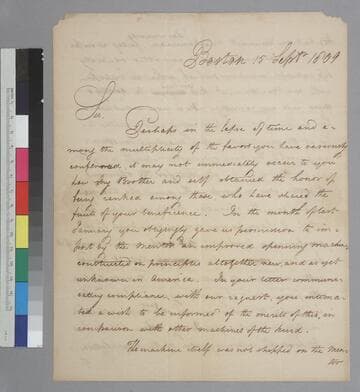 Boston 15 Septr. 1809
Sir,
Perhaps in the lapse of time and a-
mong the multiplicity of the favors you have variously
conferred it may not immediately occur to you
how my Brother and self attained the honor of
being ranked among those who have shared the
fruits of your beneficence. In the month of last
January you obligingly gave us permission to im-
port by the an improved spinning machine,
constructed on principles altogether new, and as yet
unknown in America. In your letter communi-
cating compliance with our request, you intima-
ted a wish to be informed of the merits of this, in
comparison with other machines of the kind.
The machine itself was not shipped on the